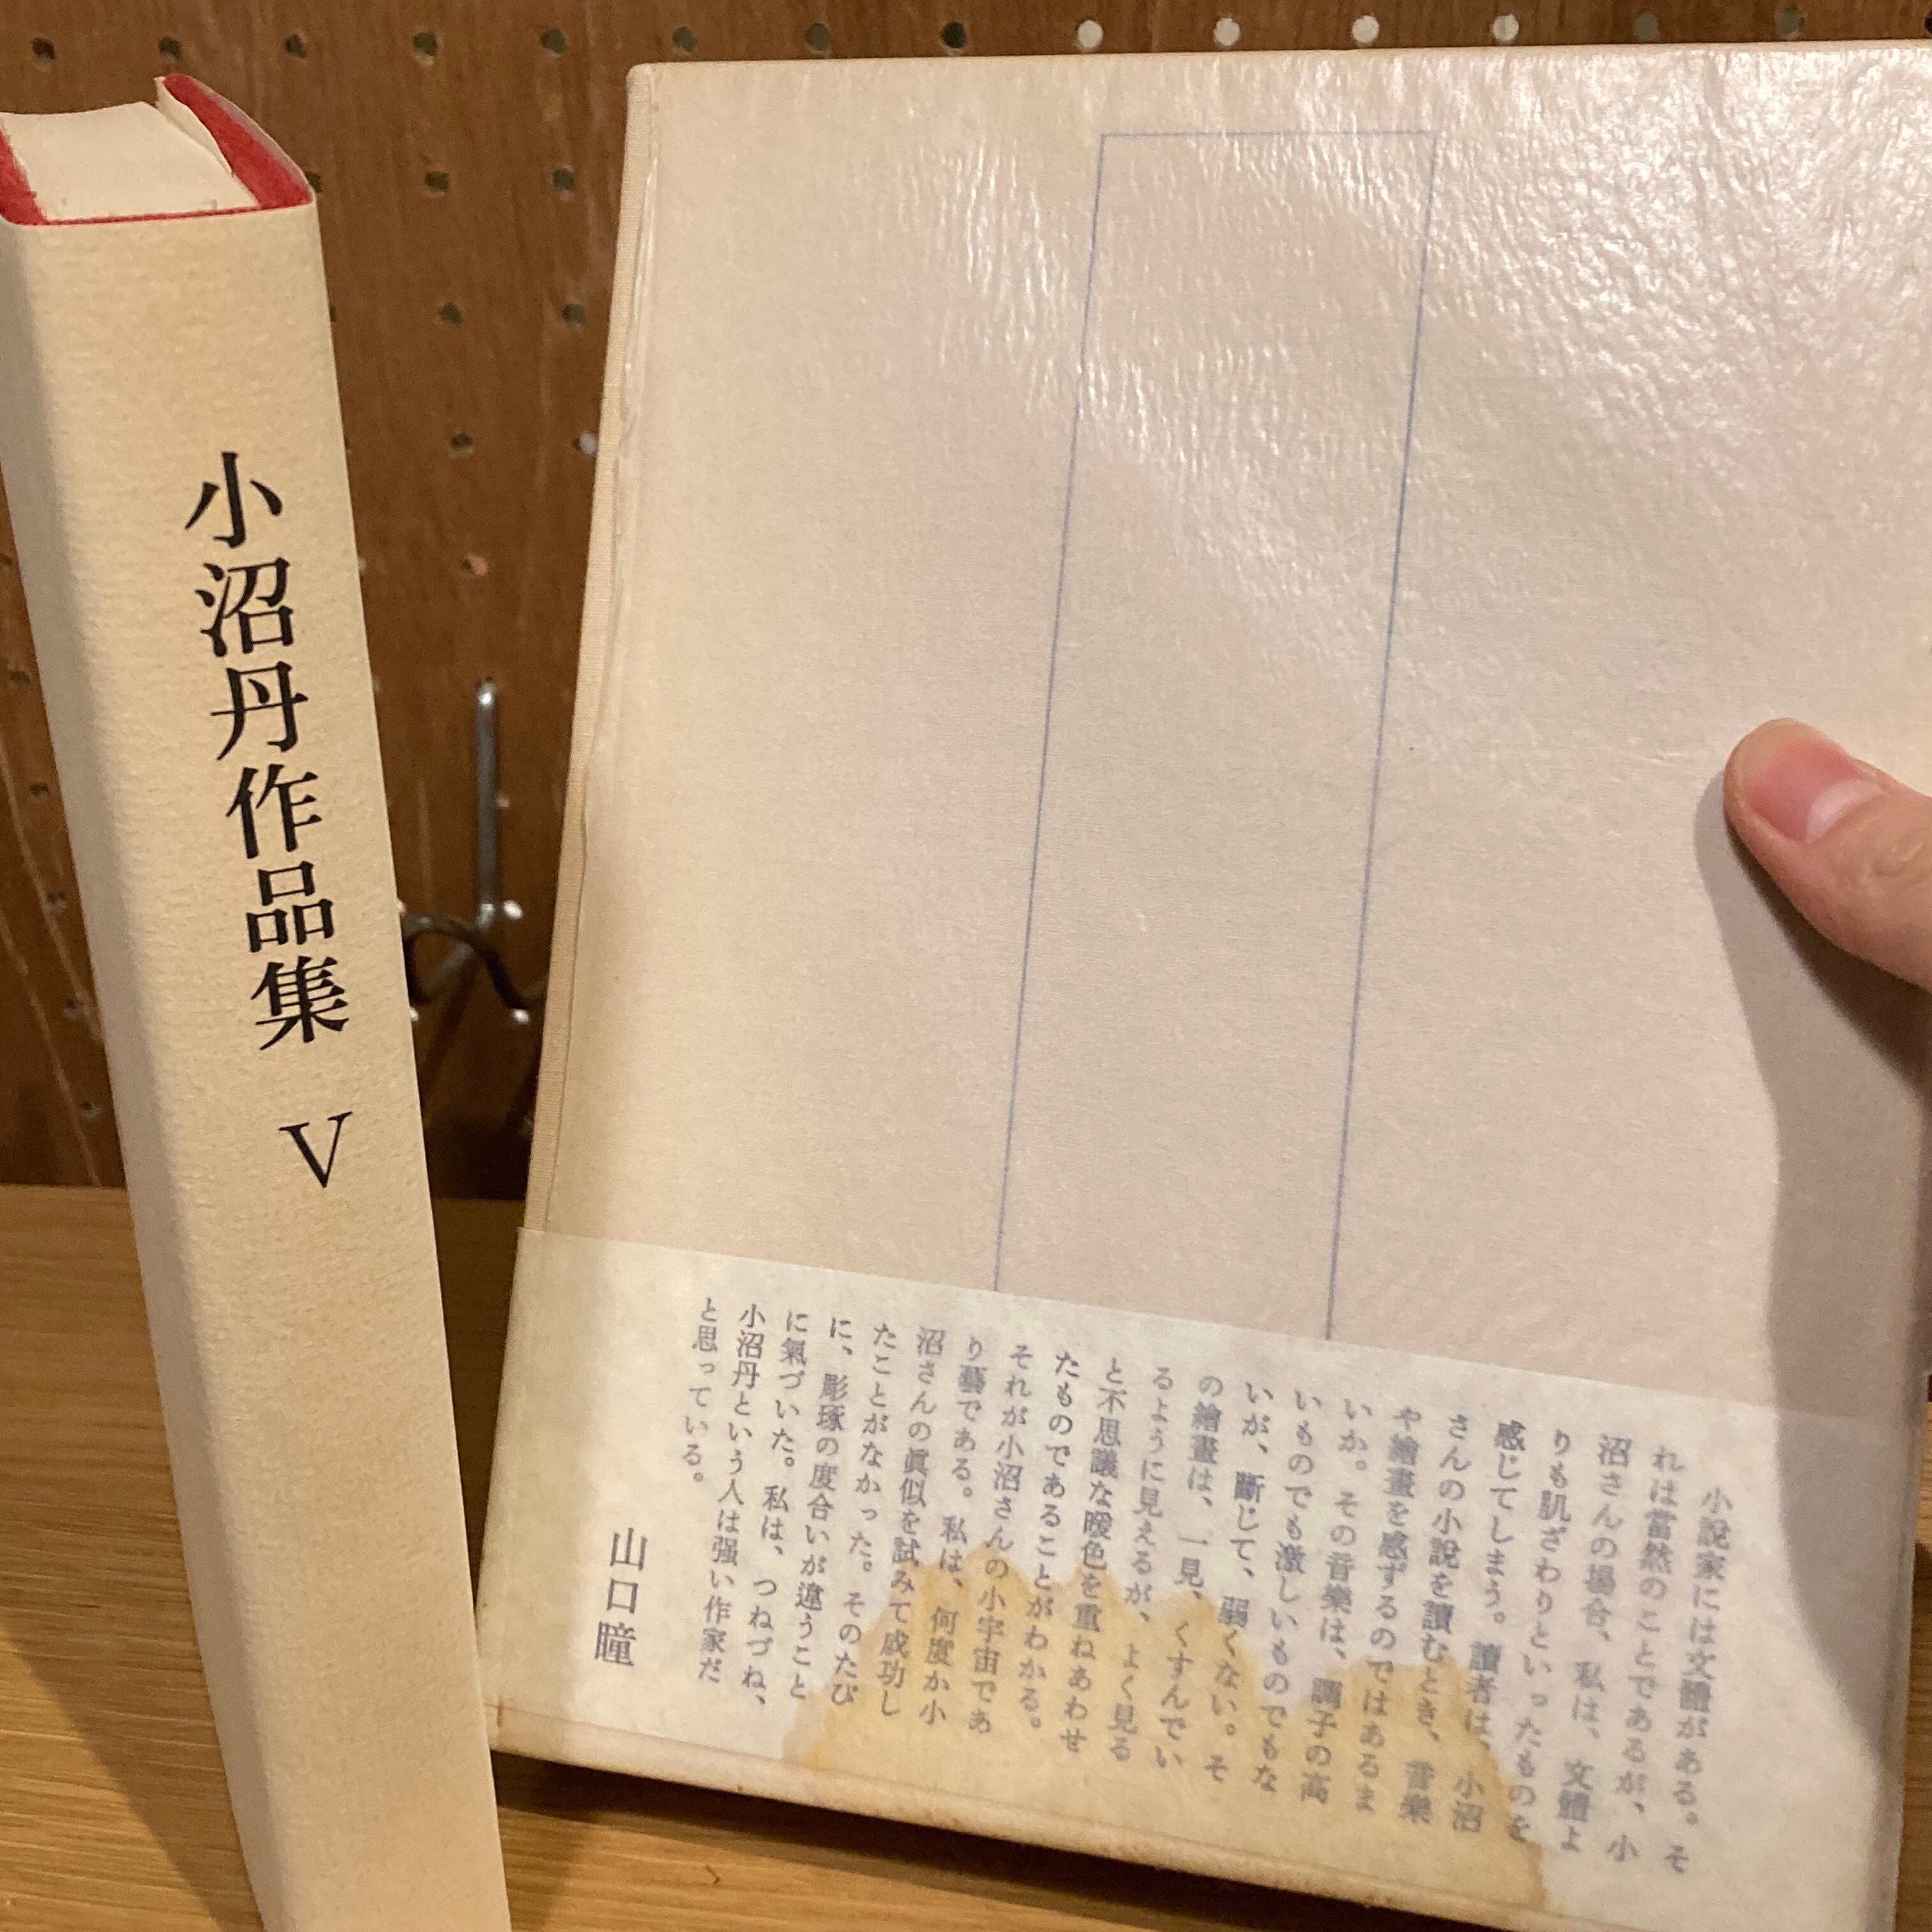 小沼丹作品集 V
小說家には文體がある。そ
れは當然のことであるが、小
沼さんの場合、私は、文體よ
りも肌ざわりといったものを
感じてしまう。讀者は、小沼
さんの小說を讀むとき、音樂
や繪畫を感ずるのではあるま
いか。その音樂は、調子の高
いものでも激しいものでもな
いが、斷じて、弱くない。そ
の繪畫は、一見、くすんでい
るように見えるが、よく見る
と不思議な暖色を重ねあわせ
たものであることがわかる。
それが小沼さんの小宇宙であ
り藝である。私は、何度か小
沼さんの眞似を試みて成功し
たことがなかった。そのたび
に、彫琢の度合いが違うこと
に氣づいた。私は、つねづね、
小沼丹という人は强い作家だ
と思っている。
山口瞳